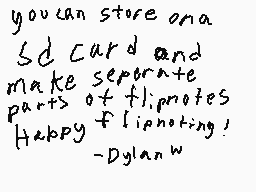 you can store on a
sd card and
make seperate
parts of flipnotes
Happy flipnoting!
-Dylan W